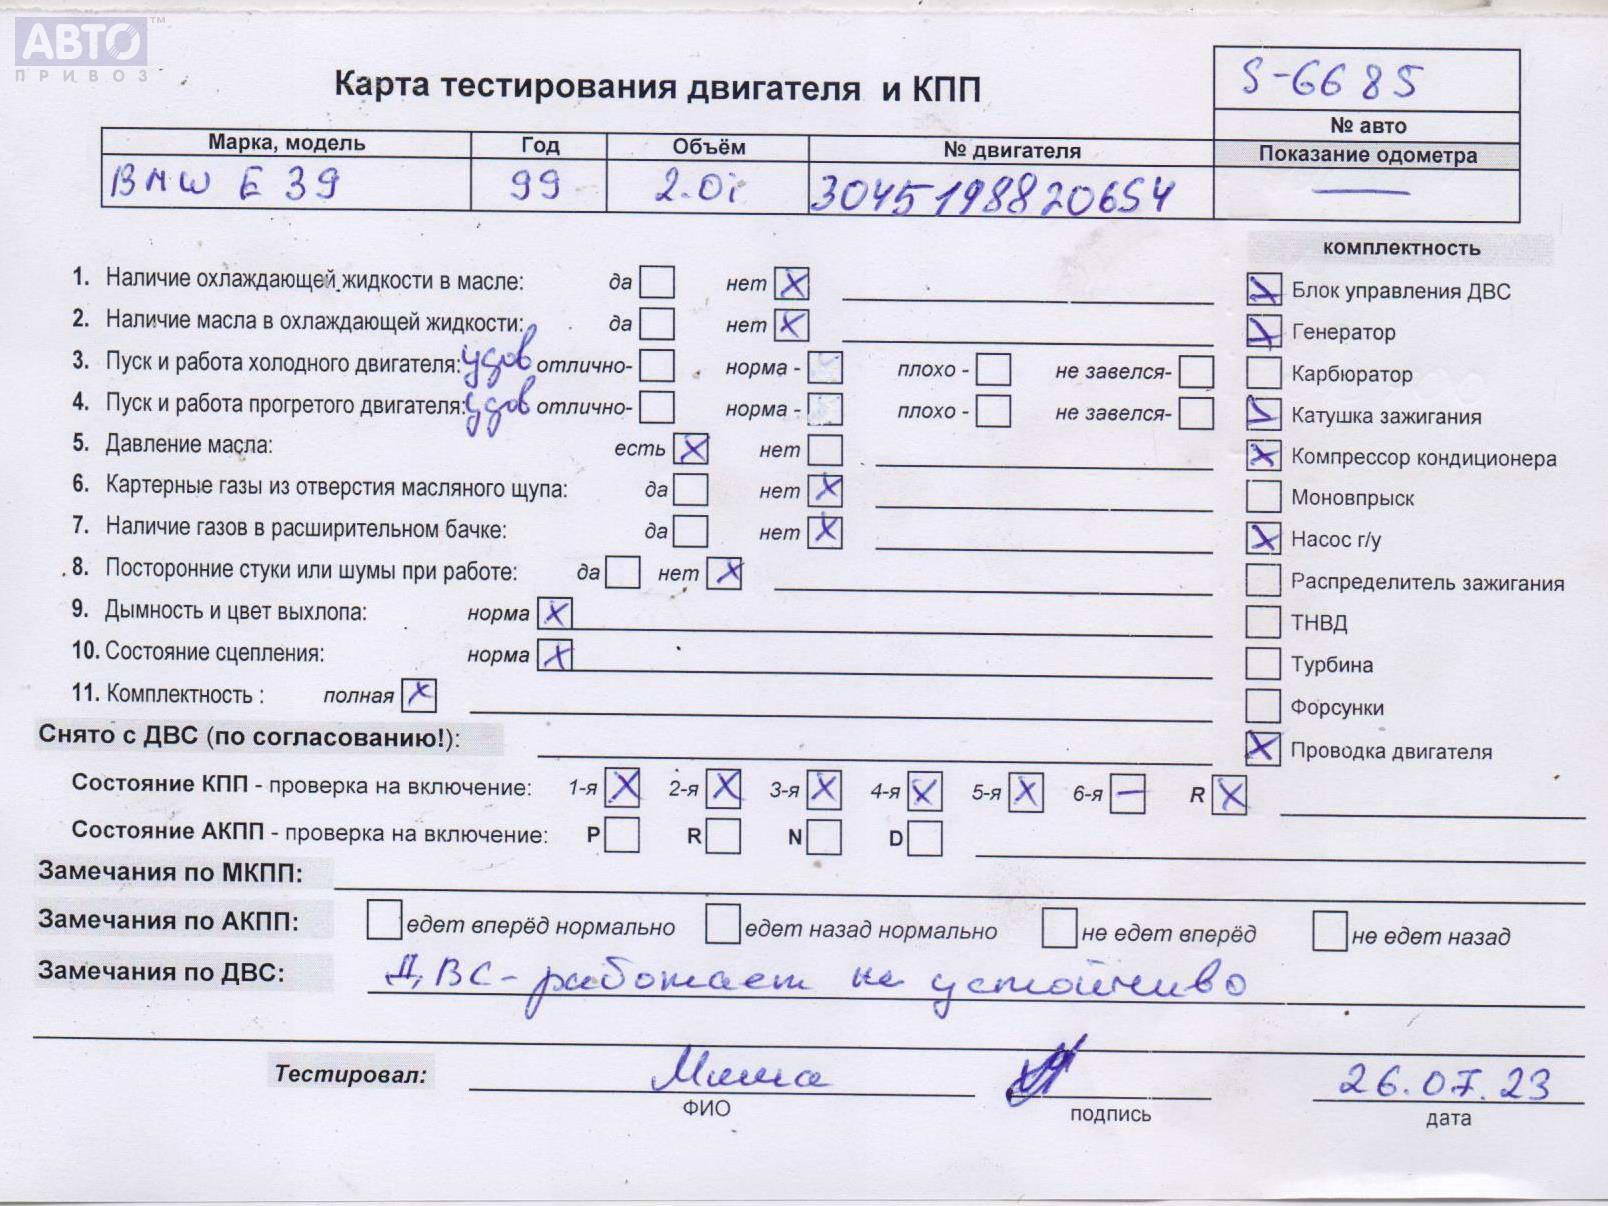 АВТО™
ПРИВОЗ
Карта тестирования двигателя и КПП
S-6685
№ авто
Марка, модель Год Объём № двигателя Показание одометра
BMW E 39 99 2.0i 3045198820654 —
комплектность
1. Наличие охлаждающей жидкости в масле: да нет X
2. Наличие масла в охлаждающей жидкости: да нет X
3. Пуск и работа холодного двигателя: удов отлично- норма - плохо - не завелся-
4. Пуск и работа прогретого двигателя: удов отлично- норма - плохо - не завелся-
5. Давление масла: есть X нет
6. Картерные газы из отверстия масляного щупа: да нет X
7. Наличие газов в расширительном бачке: да нет X
8. Посторонние стуки или шумы при работе: да нет X
9. Дымность и цвет выхлопа: норма X
10. Состояние сцепления: норма X
11. Комплектность : полная X
X Блок управления ДВС
X Генератор
Карбюратор
X Катушка зажигания
X Компрессор кондиционера
Моновпрыск
X Насос г/у
Распределитель зажигания
ТНВД
Турбина
Форсунки
X Проводка двигателя
Снято с ДВС (по согласованию!):
Состояние КПП - проверка на включение: 1-я X 2-я X 3-я X 4-я X 5-я X 6-я — R X
Состояние АКПП - проверка на включение: P R N D
Замечания по МКПП:
Замечания по АКПП: едет вперёд нормально едет назад нормально не едет вперёд не едет назад
Замечания по ДВС: ДВС - работает не устойчиво
Тестировал: Миша 26.07.23
ФИО подпись дата